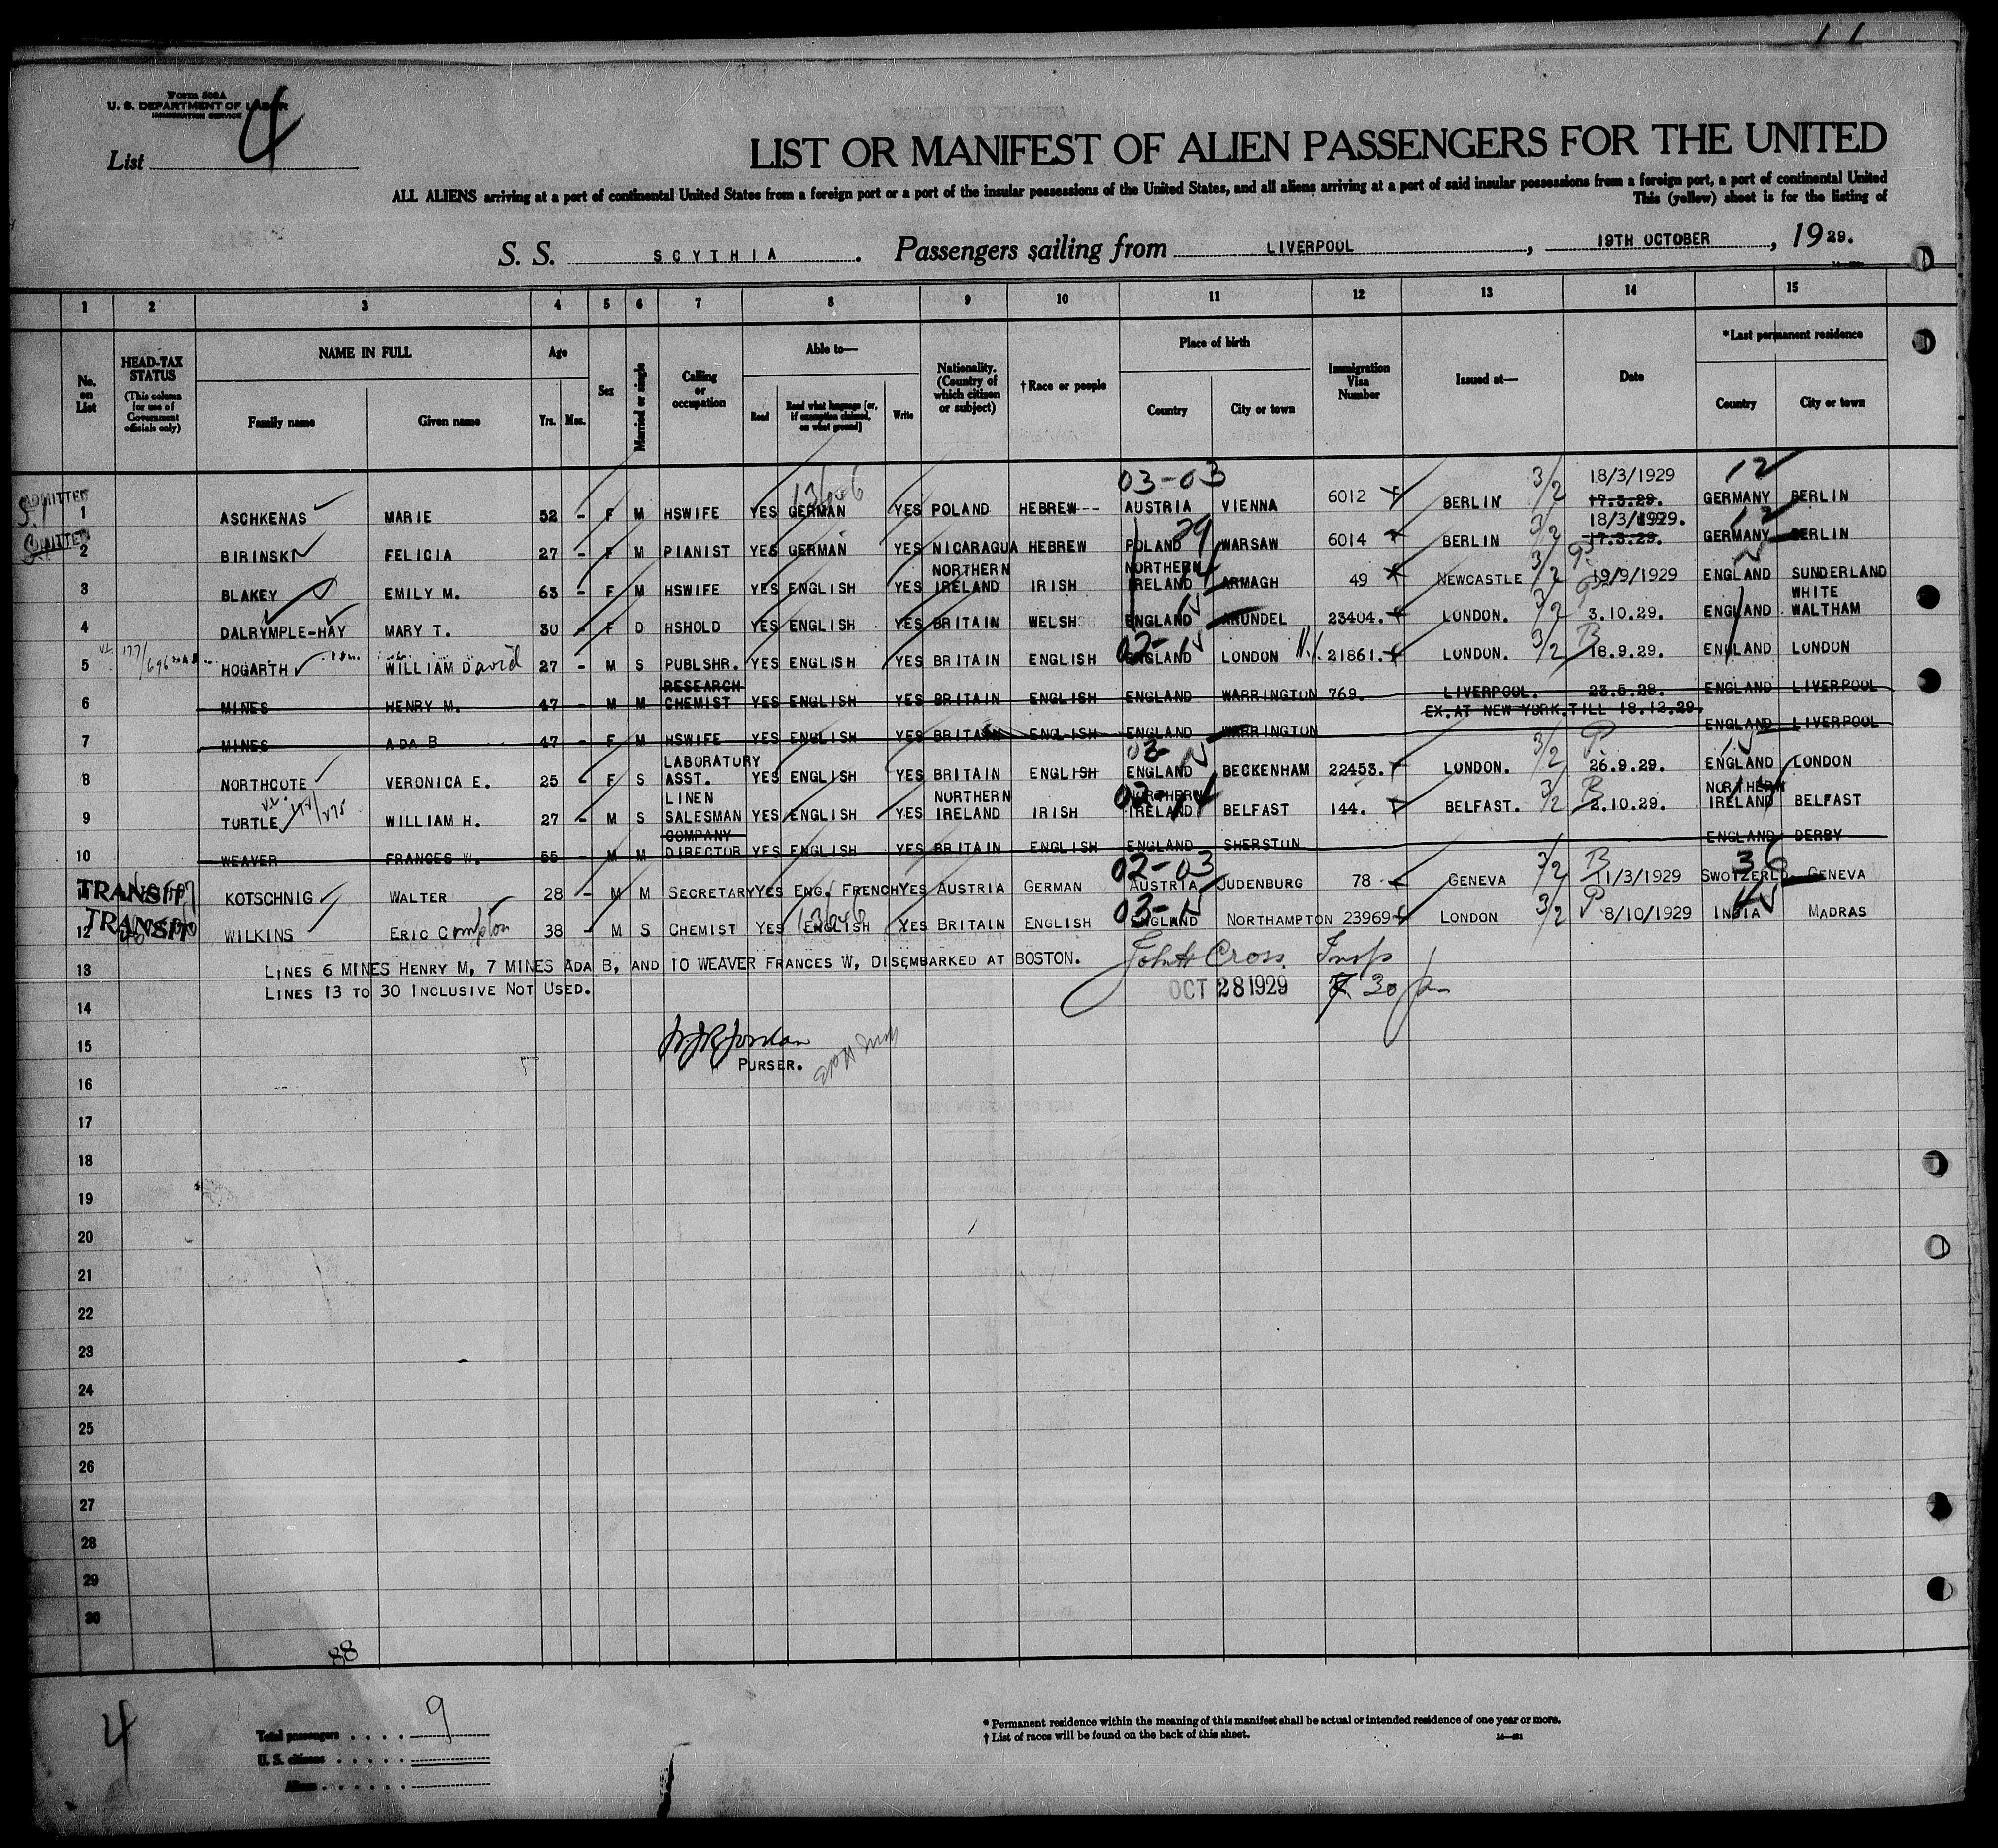 11
Form 500A
U. S. DEPARTMENT OF LABOR
IMMIGRATION SERVICE
List 4
LIST OR MANIFEST OF ALIEN PASSENGERS FOR THE UNITED
ALL ALIENS arriving at a port of continental United States from a foreign port or a port of the insular possessions of the United States, and all aliens arriving at a port of said insular possessions from a foreign port, a port of continental United
This (yellow) sheet is for the listing of
S. S. SCYTHIA. Passengers sailing from LIVERPOOL, 19TH OCTOBER, 1929.
1 2 3 4 5 6 7 8 9 10 11 12 13 14 15
No. on List
HEAD-TAX STATUS (This column for use of Government officials only)
NAME IN FULL Family name Given name
Age Yrs. Mos.
Sex
Married or single
Calling or occupation
Able to— Read Read what language [or, if exemption claimed, on what ground] Write
Nationality. (Country of which citizen or subject)
†Race or people
Place of birth Country City or town
Immigration Visa Number
Issued at—
Date
*Last permanent residence Country City or town
ADMITTED 1 ASCHKENAS MARIE 52 - F M HSWIFE YES GERMAN YES POLAND HEBREW-- 03-03 AUSTRIA VIENNA 6012 BERLIN 3/2 18/3/1929 17.3.29. 12 GERMANY BERLIN
2 BIRINSKI FELICIA 27 - F M PIANIST YES GERMAN YES NICARAGUA HEBREW POLAND WARSAW 6014 BERLIN 3/2 18/3/1929. 17.3.29. 12 GERMANY BERLIN
3 BLAKEY EMILY M. 63 - F M HSWIFE YES ENGLISH YES NORTHERN IRELAND IRISH NORTHERN IRELAND ARMAGH 49 NEWCASTLE 3/2 19/9/1929 ENGLAND SUNDERLAND
4 DALRYMPLE-HAY MARY T. 30 - F D HSHOLD YES ENGLISH YES BRITAIN WELSH ENGLAND ARUNDEL 23404. LONDON. 3/2 3.10.29. ENGLAND WHITE WALTHAM
5 HOGARTH WILLIAM David 27 - M S PUBLSHR. YES ENGLISH YES BRITAIN ENGLISH ENGLAND LONDON 21861. LONDON. 3/2 18.9.29. ENGLAND LONDON
6 MINES HENRY M. 47 - M M RESEARCH CHEMIST YES ENGLISH YES BRITAIN ENGLISH ENGLAND WARRINGTON 769. LIVERPOOL. 23.5.28. ENGLAND LIVERPOOL
EX.AT NEW YORK.TILL 18.12.29.
7 MINES ADA B 47 - F M HSWIFE YES ENGLISH YES BRITAIN ENGLISH ENGLAND WARRINGTON ENGLAND LIVERPOOL
8 NORTHCOTE VERONICA E. 25 - F S LABORATORY ASST. YES ENGLISH YES BRITAIN ENGLISH ENGLAND BECKENHAM 22453. LONDON. 3/2 26.9.29. ENGLAND LONDON
9 TURTLE WILLIAM H. 27 - M S LINEN SALESMAN YES ENGLISH YES NORTHERN IRELAND IRISH NORTHERN IRELAND BELFAST 144. BELFAST. 3/2 2.10.29. NORTHERN IRELAND BELFAST
10 WEAVER FRANCES W. 55 - M M COMPANY DIRECTOR YES ENGLISH YES BRITAIN ENGLISH ENGLAND SHERSTON ENGLAND DERBY
TRANSIT KOTSCHNIG WALTER 28 - M M SECRETARY YES ENG. FRENCH YES AUSTRIA GERMAN 02-03 AUSTRIA JUDENBURG 78 GENEVA 3/2 11/3/1929 SWOTZERLD GENEVA
TRANSIT 12 WILKINS ERIC Compton 38 - M S CHEMIST YES ENGLISH YES BRITAIN ENGLISH ENGLAND NORTHAMPTON 23969 LONDON 3/2 8/10/1929 INDIA MADRAS
13 LINES 6 MINES HENRY M, 7 MINES ADA B, AND 10 WEAVER FRANCES W, DISEMBARKED AT BOSTON. John H Cross Insp
LINES 13 TO 30 INCLUSIVE NOT USED. OCT 28 1929
14
15
PURSER.
16
17
18
19
20
21
22
23
24
25
26
27
28
29
30
88
4
Total passengers . . . . 9
U. S. citizens . . . . .
Aliens . . . . . .
* Permanent residence within the meaning of this manifest shall be actual or intended residence of one year or more.
† List of races will be found on the back of this sheet.